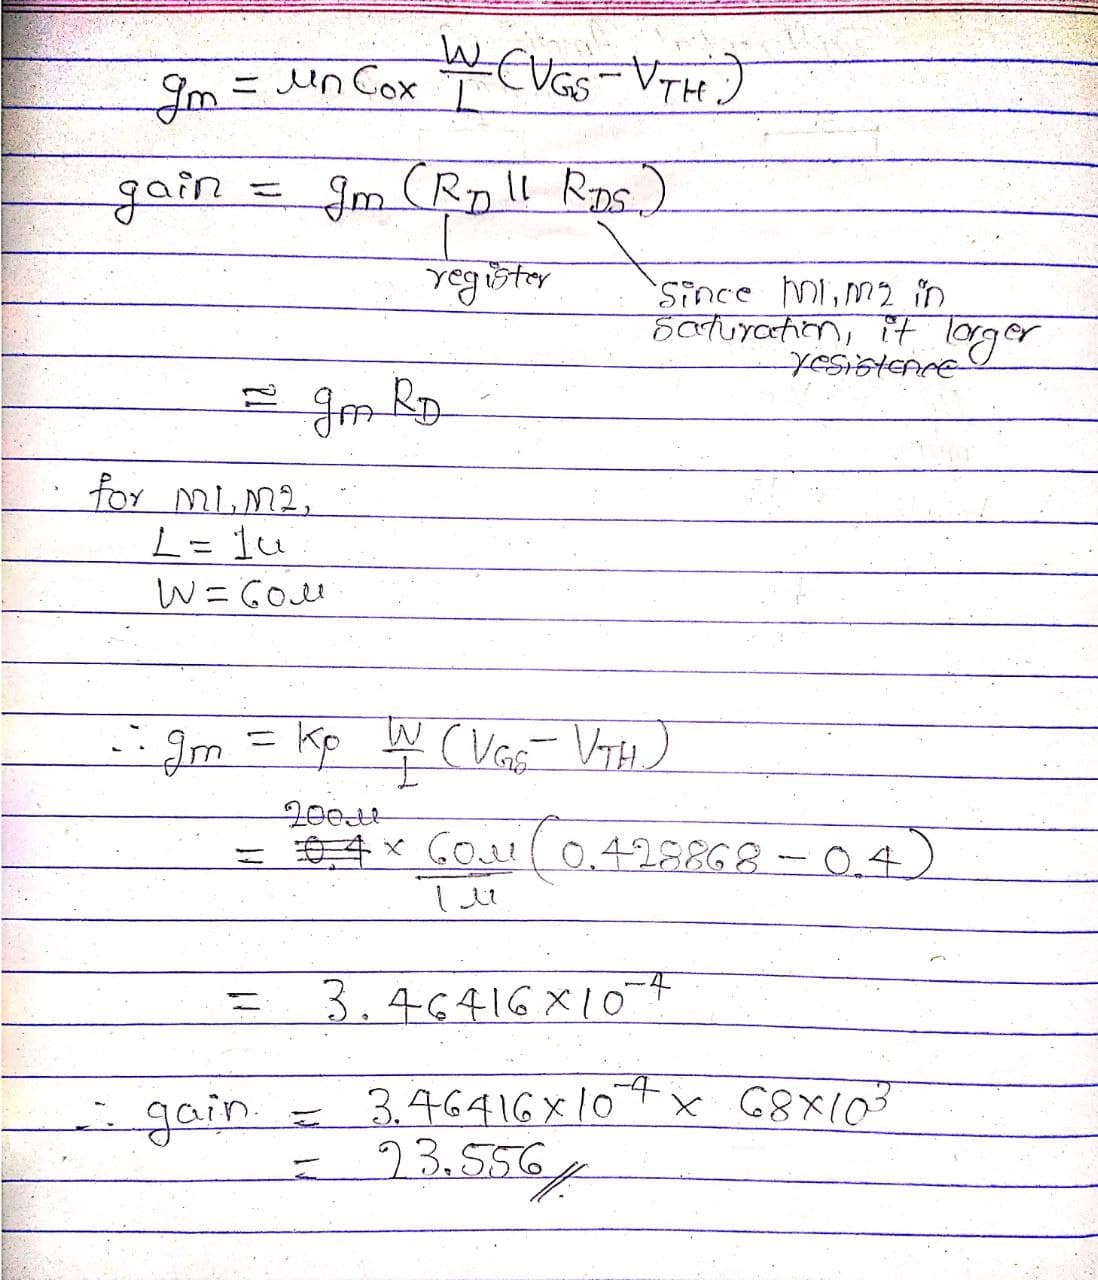 gm = μn Cox W/L (VGS - VTH)
gain = gm (RD || RDS)
register
since M1, M2 in
saturation, it larger
resistence
≈ gm RD
for M1, M2,
L = 1u
W = 60u
∴ gm = Kp W/L (VGS - VTH)
200u
= 0.4 × 60u/1u (0.428868 - 0.4)
= 3.46416 × 10^-4
∴ gain = 3.46416 × 10^-4 × 68 × 10^3
= 23.556 //.